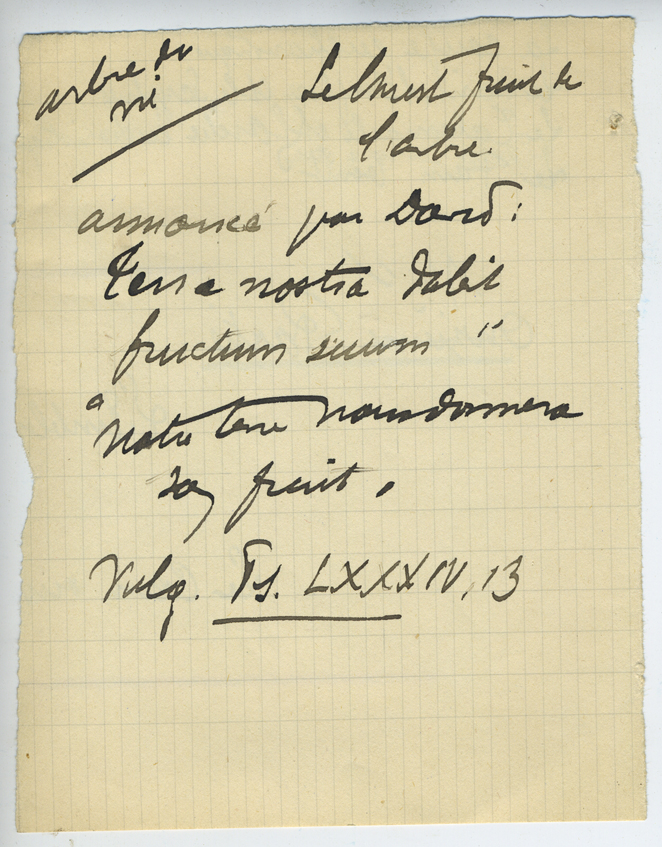 arbre de
vie
Le Christ fruit de
l'arbre
annoncé par David :
Terra nostra dabit
fructum suum "
" Notre terre nous donnera
son fruit.
Vulg. Ps. LXXXIV, 13